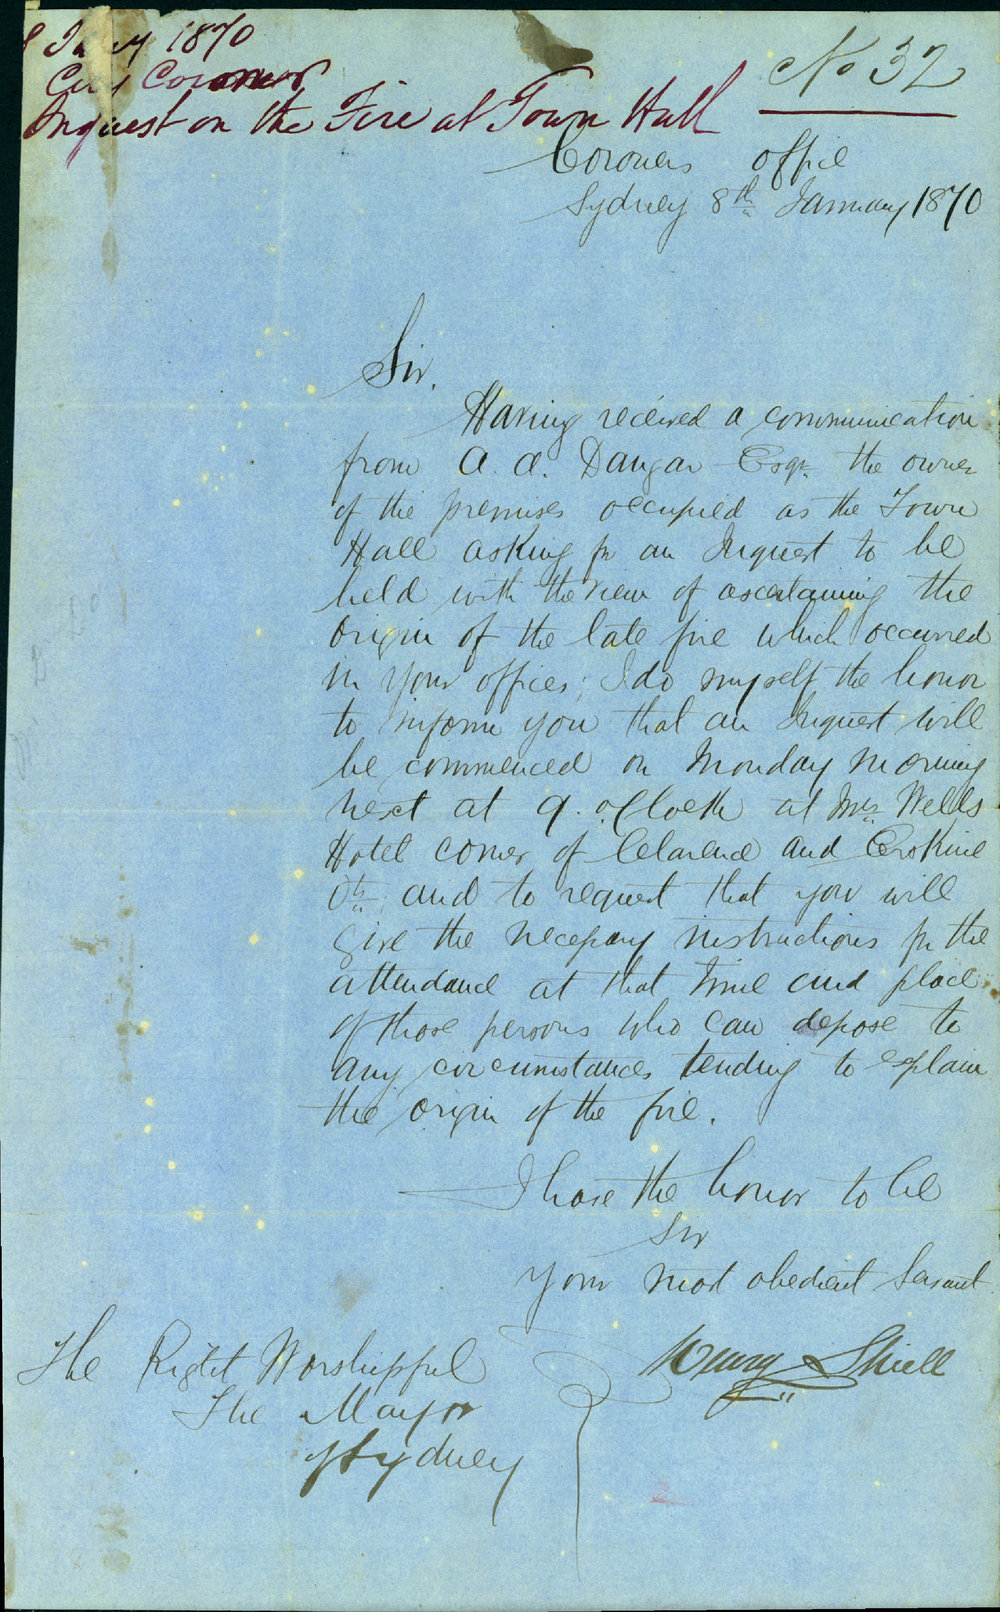 8 Jany 1870
City Coroner
Inquest on the Fire at Town Hall
No 32
Coroners office
Sydney 8th January 1870
Sir,
Having received a communication
from A. A. Dangar Esqr. the owner
of the premises occupied as the Town
Hall asking for an Inquest to be
held with the view of ascertaining the
origin of the late fire which occurred
in your offices; I do myself the honor
to inform you that an Inquest will
be commenced on Monday morning
next at 9. o'Clock at Mrs Wells
Hotel corner of Clarence and Erskine
Sts and to request that you will
give the necessary instructions for the
attendance at that time and place
of those persons who can depose to
any circumstances tending to explain
the origin of the fire.
I have the honor to be
Sir
Your most obedient Servant
Henry Shiell
The Right Worshipful
The Mayor
of Sydney